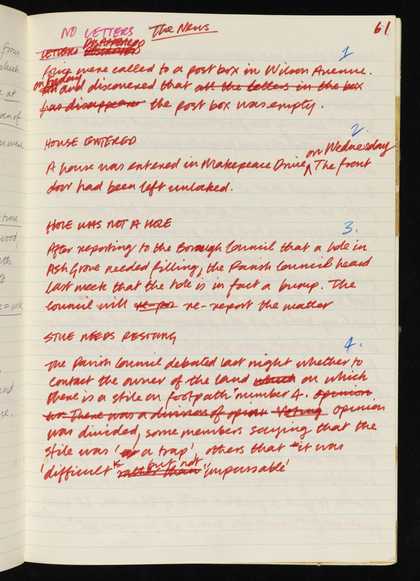 NO LETTERS The News 61
LETTERS DISAPPEARED
1
Police were called to a post box in Wilson Avenue.
on Friday and discovered that all the letters in the box
has disappear the post box was empty.
2.
HOUSE ENTERED
on Wednesday
A house was entered in Makepeace Drive, The front
door had been left unlocked.
HOLE WAS NOT A HOLE
3.
After reporting to the Borough Council that a hole in
Ash Grove needed filling, the Parish Council heard
last week that the hole is in fact a bump. The
Council will re-por re-report the matter
STILE NEEDS RESITING
4.
The Parish Council debated last night whether to
contact the owner of the land which on which
there is a stile on footpath number 4. opinion
There was a division of opini Voting opinion
was divided, some members saying that the
stile was 'a trap', others that it was
but not
'difficult' rather than 'impassable'